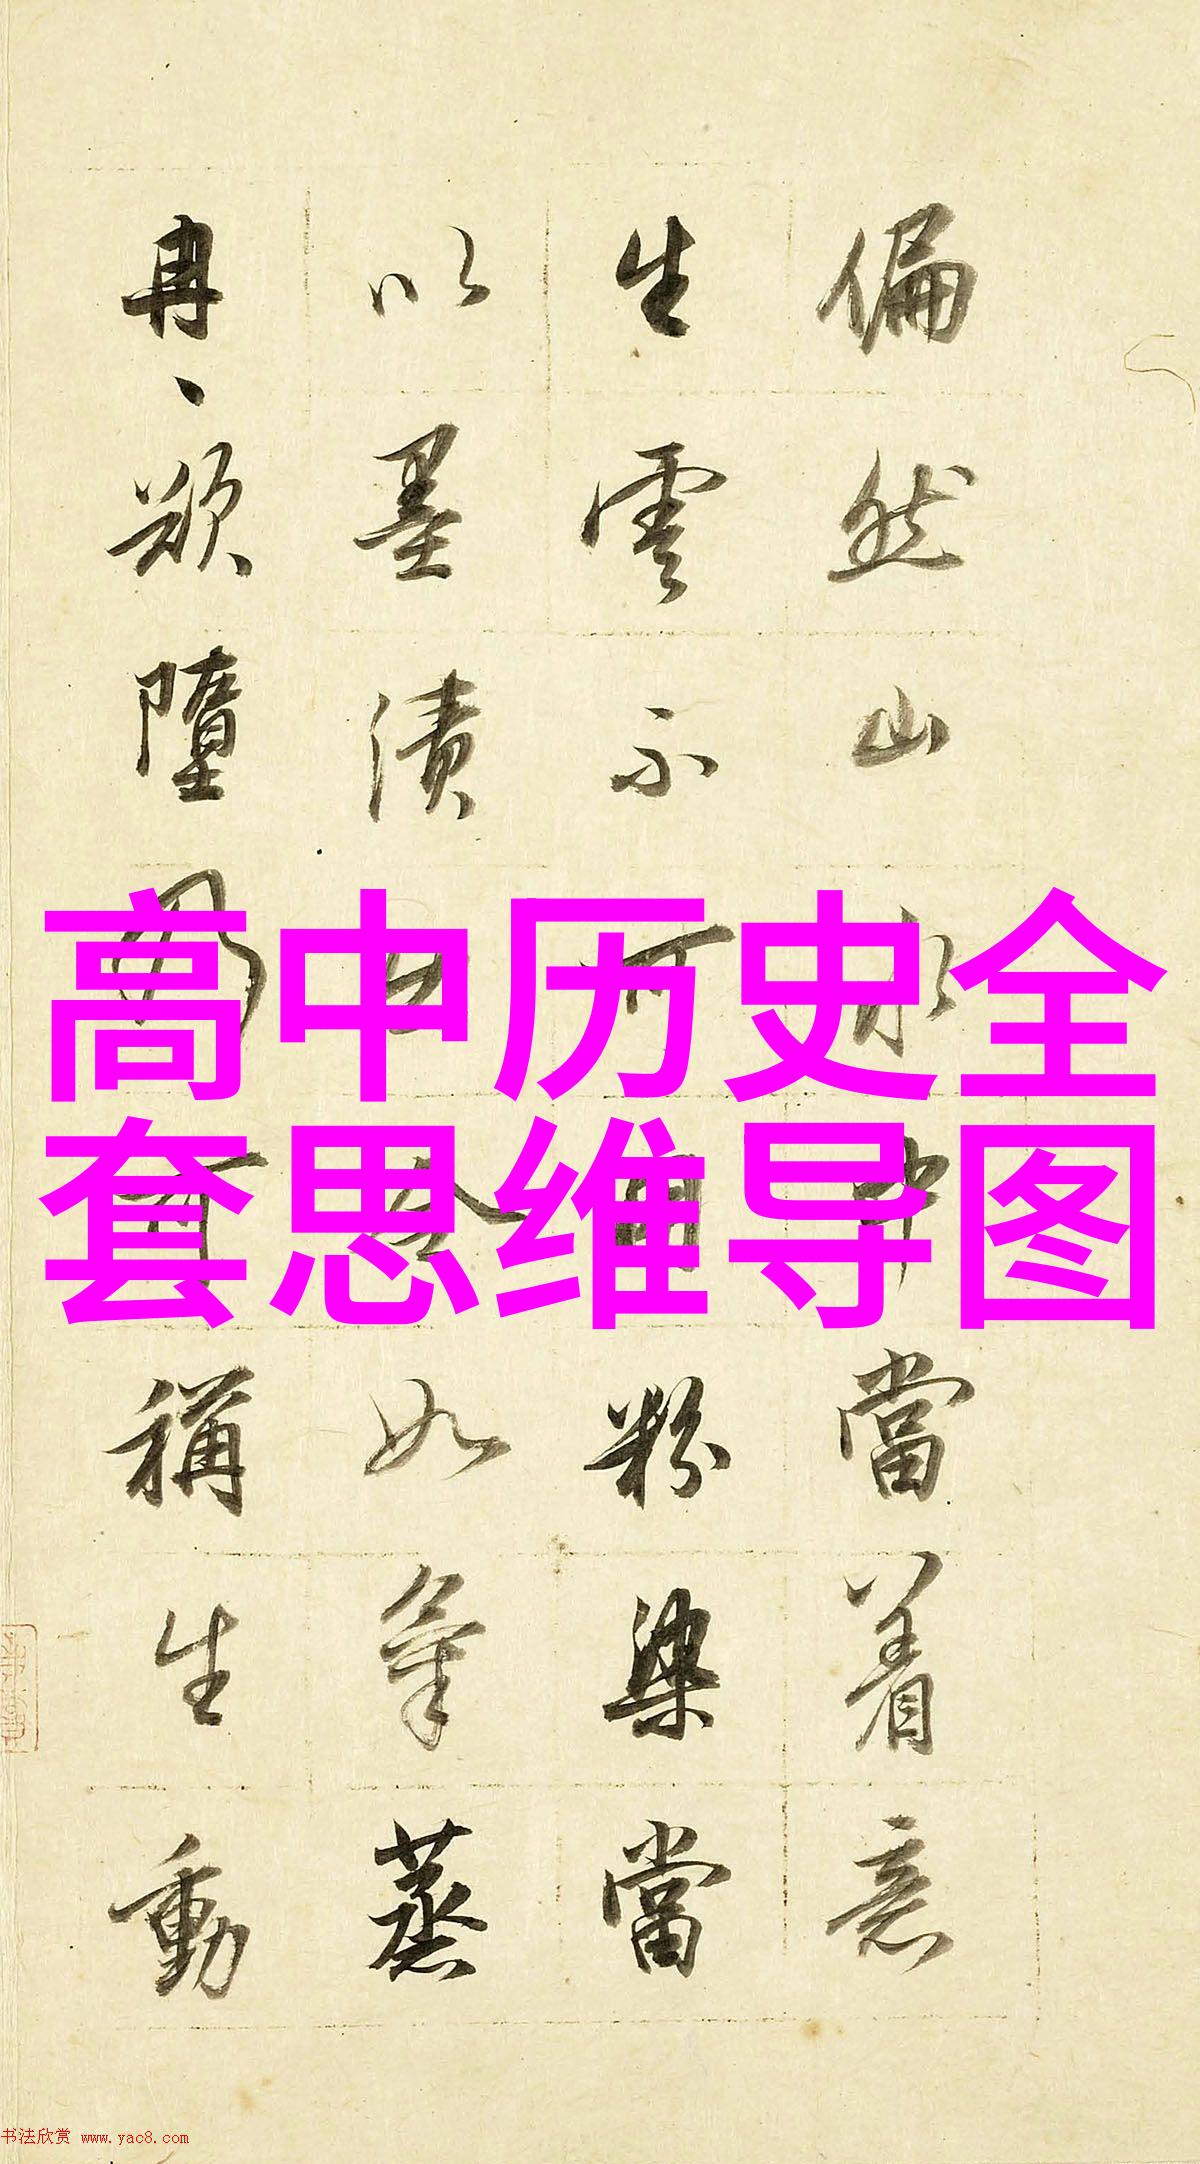 偏然山水中當着意
生雲不可用粉染當
以墨漬出令如氣蒸
冉、欲墮乃可稱生動
高中历史全
套思维导图
书法欣赏 www.yac8.com